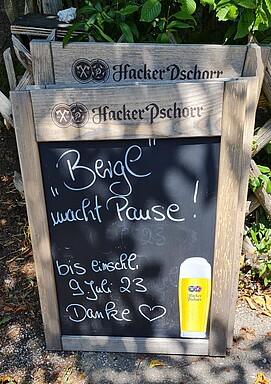 Hacker-Pschorr
Hacker-Pschorr
„Bergl“
macht Pause!
bis einschl.
9 Juli 23
Danke ♡
Hacker-Pschorr